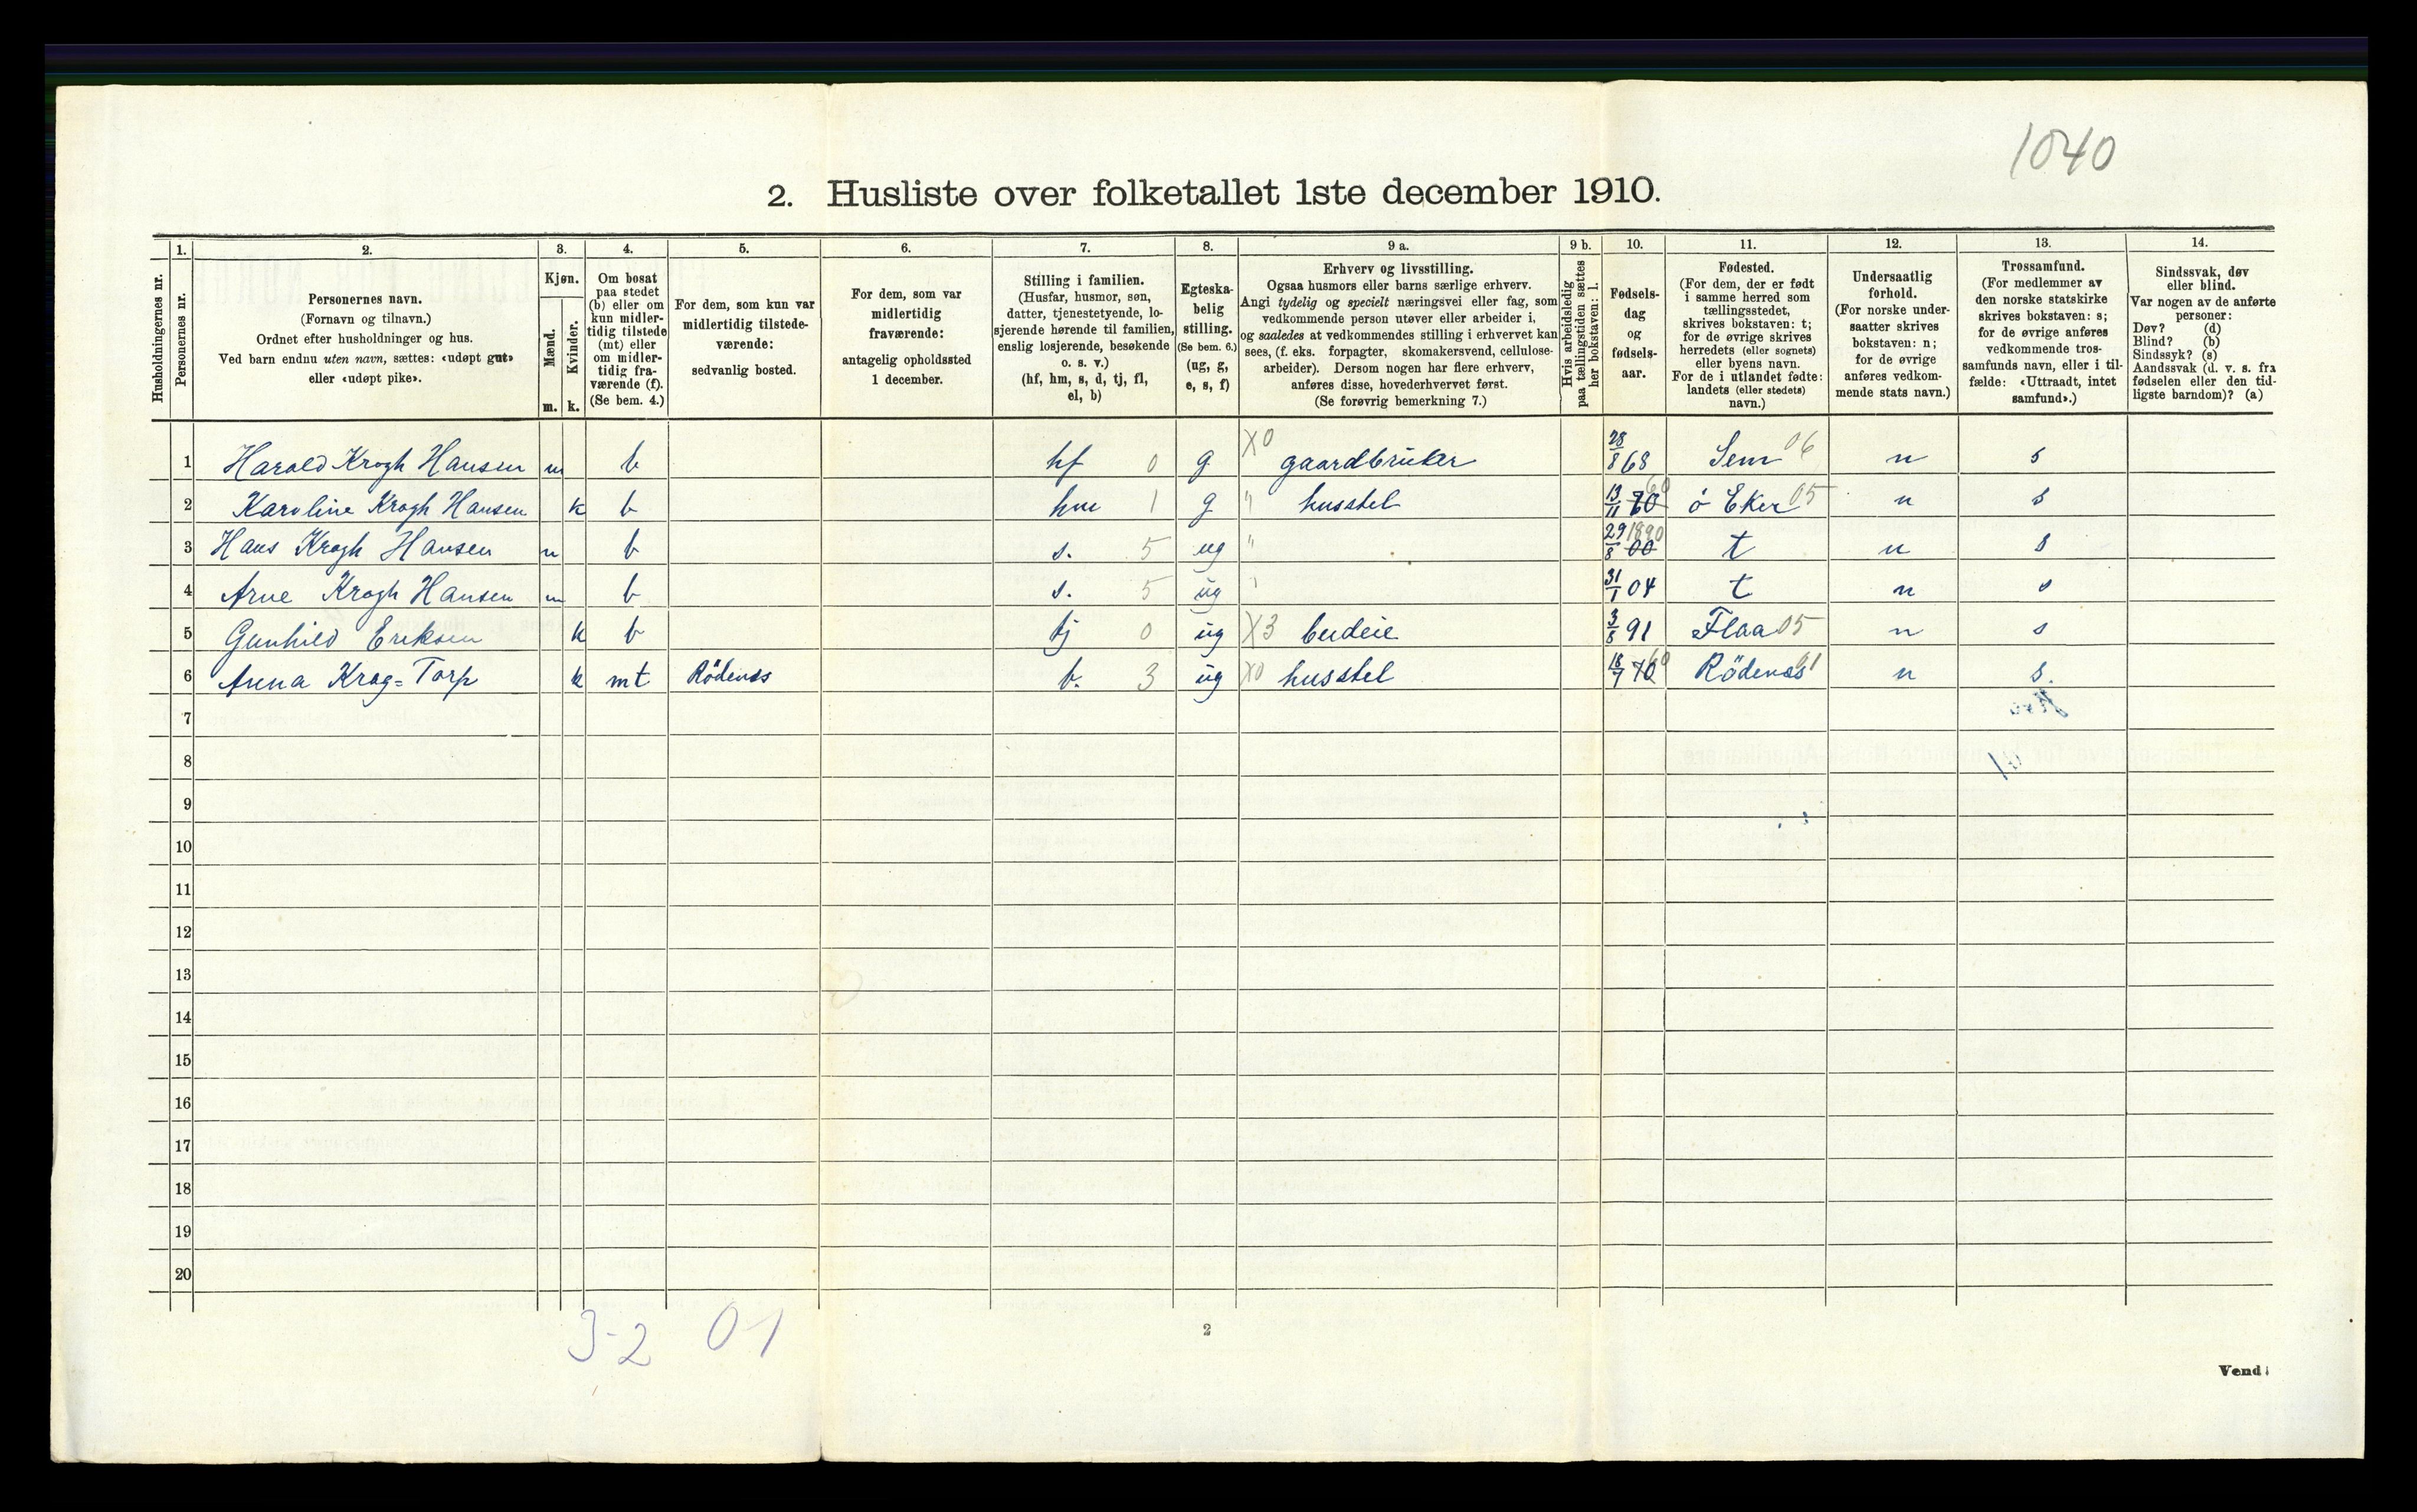 1040
2. Husliste over folketallet 1ste december 1910.
Husholdningernes nr.
1. Personernes nr.
2. Personernes navn. (Fornavn og tilnavn.) Ordnet efter husholdninger og hus. Ved barn endnu uten navn, sættes: «udøpt gut» eller «udøpt pike».
3. Kjøn. Mænd. m. Kvinder. k.
4. Om bosat paa stedet (b) eller om kun midlertidig tilstede (mt) eller om midlertidig fraværende (f). (Se bem. 4.)
5. For dem, som kun var midlertidig tilstedeværende: sedvanlig bosted.
6. For dem, som var midlertidig fraværende: antagelig opholdssted 1 december.
7. Stilling i familien. (Husfar, husmor, søn, datter, tjenestetyende, losjerende hørende til familien, enslig losjerende, besøkende o. s. v.) (hf, hm, s, d, tj, fl, el, b)
8. Egteskabelig stilling. (Se bem. 6.) (ug, g, e, s, f)
9 a. Erhverv og livsstilling. Ogsaa husmors eller barns særlige erhverv. Angi tydelig og specielt næringsvei eller fag, som vedkommende person utøver eller arbeider i, og saaledes at vedkommendes stilling i erhvervet kan sees, (f. eks. forpagter, skomakersvend, cellulosearbeider). Dersom nogen har flere erhverv, anføres disse, hovederhvervet først. (Se forøvrig bemerkning 7.)
9 b. Hvis arbeidsledig paa tællingstiden sættes her bokstaven: l.
10. Fødselsdag og fødselsaar.
11. Fødested. (For dem, der er født i samme herred som tællingsstedet, skrives bokstaven: t; for de øvrige skrives herredets (eller sognets) eller byens navn. For de i utlandet fødte: landets (eller stedets) navn.)
12. Undersaatlig forhold. (For norske undersaatter skrives bokstaven: n; for de øvrige anføres vedkommende stats navn.)
13. Trossamfund. (For medlemmer av den norske statskirke skrives bokstaven: s; for de øvrige anføres vedkommende trossamfunds navn, eller i tilfælde: «Uttraadt, intet samfund».)
14. Sindssvak, døv eller blind. Var nogen av de anførte personer: Døv? (d) Blind? (b) Sindssyk? (s) Aandssvak (d. v. s. fra fødselen eller den tidligste barndom)? (a)
1 Harald Krogh Hansen m b hf 0 g X0 gaardbruker 28/8 68 Sem 06 n s
2 Karoline Krogh Hansen k b hm 1 g " husstel 13/11 60 ö Eker 05 n s
3 Hans Krogh Hansen m b s. 5 ug " 29/8 00 1890 t n s
4 Arne Krogh Hansen m b s. 5 ug " 31/1 04 t n s
5 Gunhild Eriksen k b tj 0 ug X3 budeie 3/8 91 Flaa 05 n s
6 Anna Krag=Torp k mt Rödenes b. 3 ug X0 husstel 18/7 70 60 Rödenes 01 n s.
7
8
9
10
11
12
13
14
15
16
17
18
19
20
3-2 0-1
2
Vend!